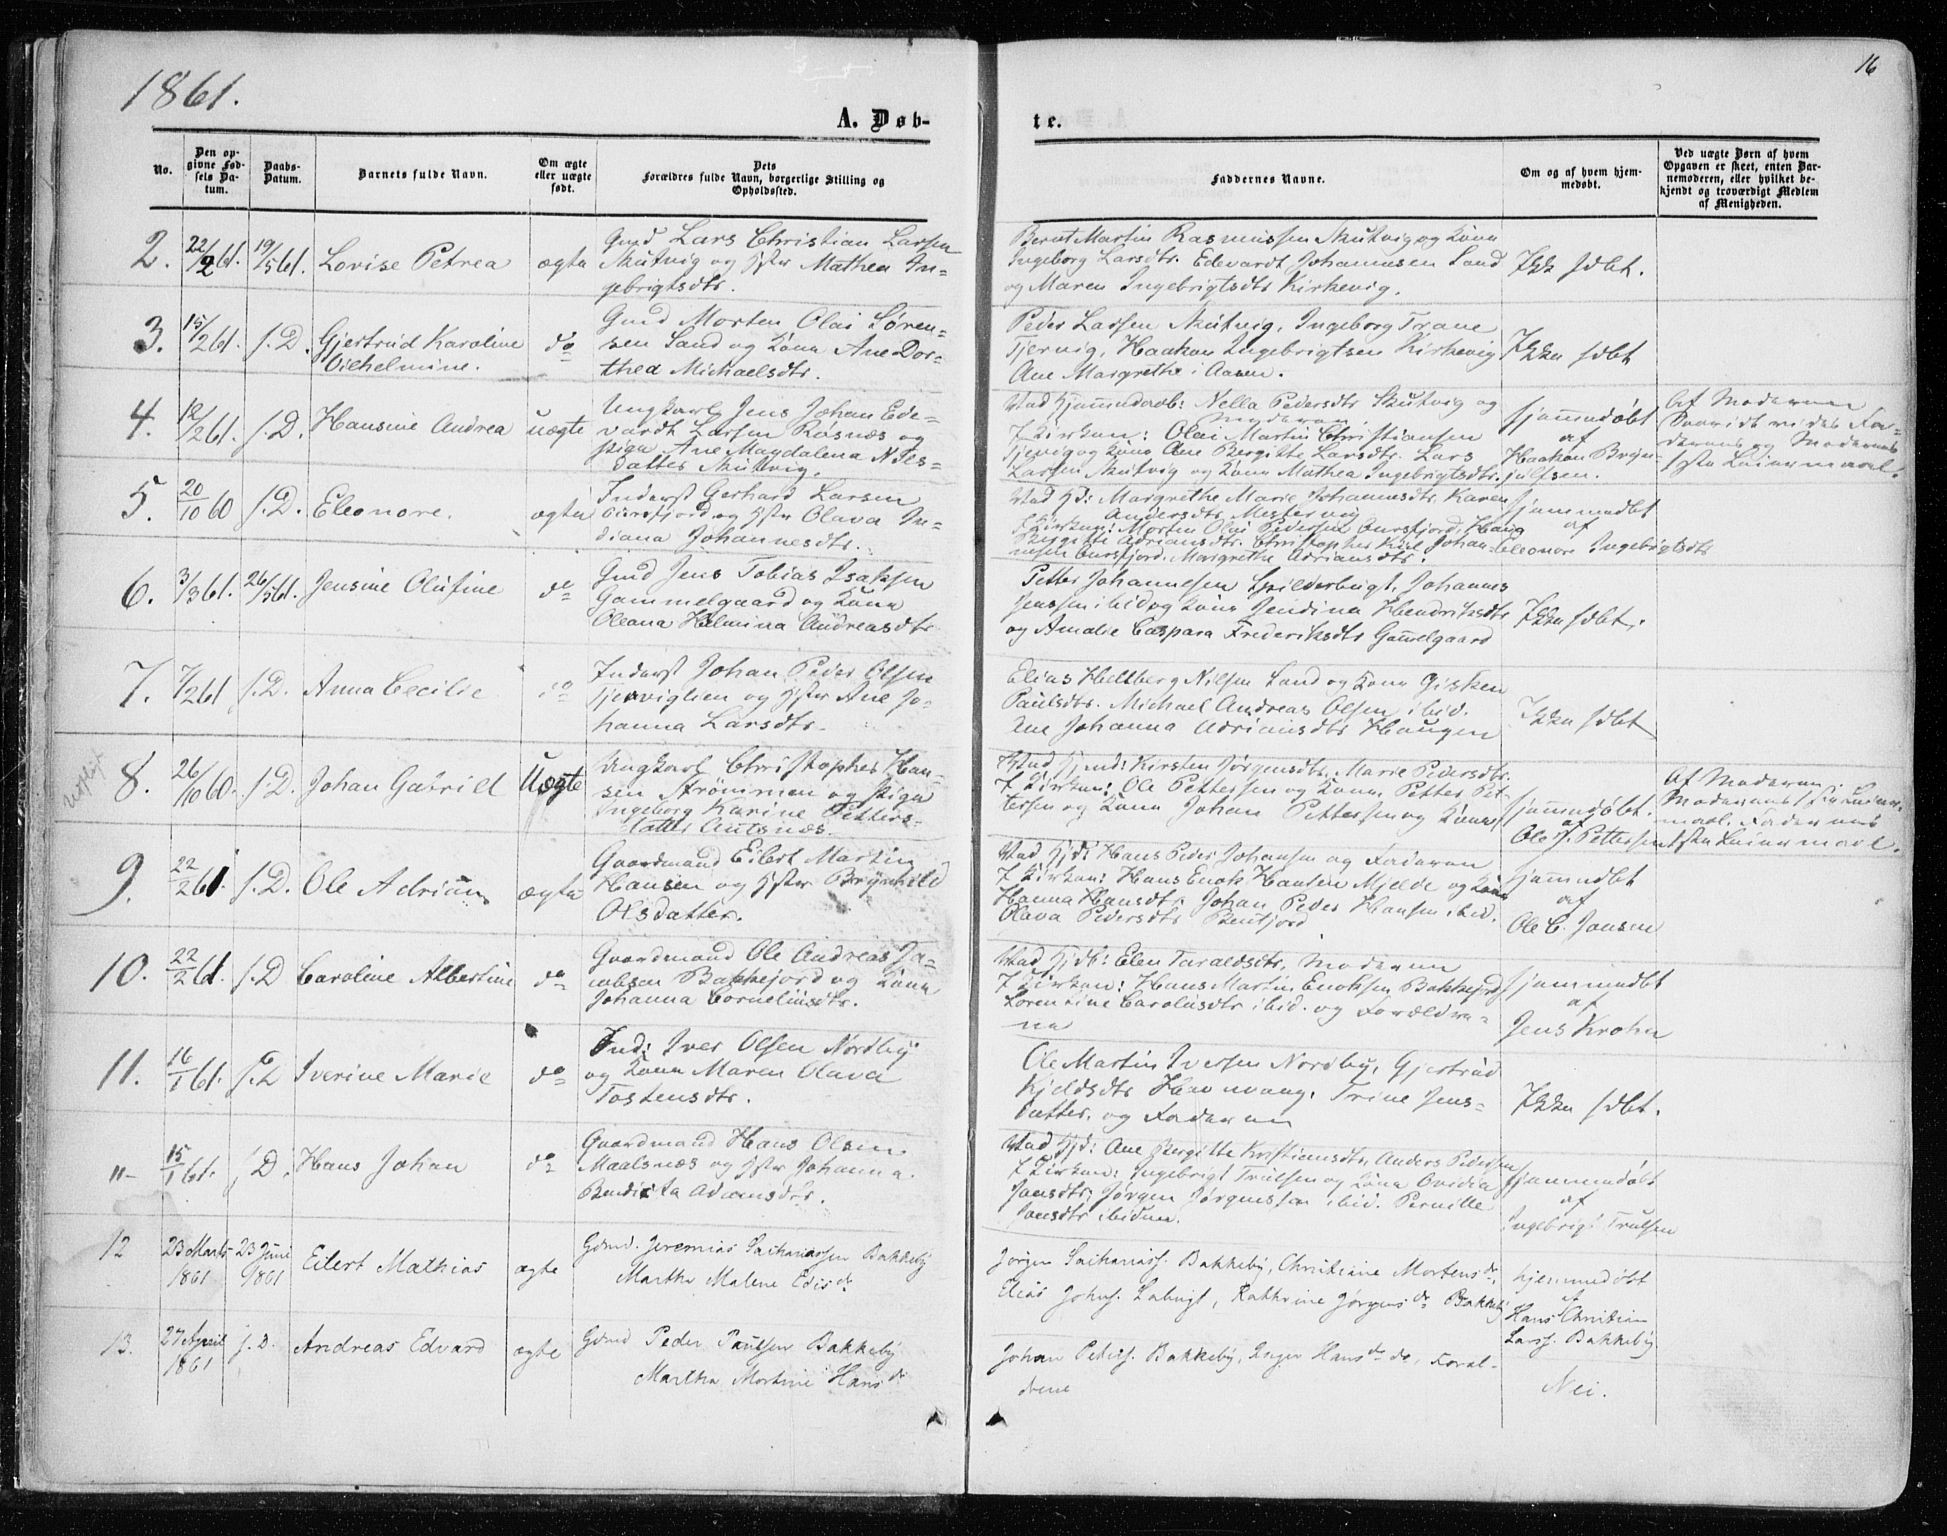 1861.
16
A. Døb-
te.
No.
Den op-
givne Fød-
sels Da-
tum.
Daabs-
Datum.
Barnets fulde Navn.
Om ægte
eller uægte
født.
Dets
Forældres fulde Navn, borgerlige Stilling og
Opholdssted.
Faddernes Navne.
Om og af hvem hjem-
medøbt.
Ved uægte Børn af hvem
Opgaven er skeet, enten Bar-
nemoderen, eller hvilket be-
kjendt og troværdigt Medlem
af Menigheden.
2. 22/2 61. 19/5 61. Lovise Petrea ægte
Gmd Lars Christian Larsen
Skutvig og Hstr Mathea In-
gebrigtsdtr.
Bernt Martin Rasmussen Skutvig og Kone
Ingeborg Larsdtr. Edevardt Johannesen Sand
og Maren Ingebrigtsdtr Kirkevig.
Ikke hdbt.
3. 15/2 61. s. D. Gjertrud Karoline
Vilhelmine. do
Gmd Morten Olai Søren-
sen Sand og Kone Ane Dor-
thea Michaelsdtr.
Peder Larsen Skutvig, Ingeborg Trane
Tjervig, Haakon Ingebrigtsen Kirkevig
Ane Margrethe i Aasen.
Ikke hdbt
4. 12/2 61. s. D. Hansine Andrea uægte
Ungkarl Jens Johan Ede-
vardt Larsen Rosnæs og
Pige Ane Magdalena Niels-
datter Skutvig.
Ved Hjemmedaab: Nella Pedersdtr Skutvig og
Moderen.
I Kirken: Olai Martin Christiansen
Tjervig og Kone Ane Bergitte Larsdtr. Lars
Larsen Skutvig og Kone Mathea Ingebrigtsdtr.
hjemmedøbt
af
Haakon Bryn-
julfsen.
Af Moderen
Faderens og Moderens
1ste Leiermaal.
5. 20/10 60 s. D. Eleonore. ægte
Inderst Gerhard Larsen
Aursfjord og Hstr Olava In-
diana Johannesdtr.
Ved Hjd: Margrethe Marie Johannesdtr. Karen
Andersdtr Mestervig
I Kirken: Morten Olai Pedersen Aursfjord, Hans
Birgitte Adriansdtr. Christopher Kiil Johan-
nesen Aursfjord. Margrethe Adriansdtr.
hjemmedbt
af
Eleonore Ingebrigtsdtr
6. 3/3 61. 26/5 61. Jensine Olufine do
Gmd Jens Tobias Isaksen
Gammelgaard og Kone
Oleana Helmina Andreasdtr
Petter Johannesen Spilderbugt, Johannes
Jenssen ibid og Kone Jendina Hendriksdtr
og Amalie Caspara Frederiksdtr Gamelgaard
Ikke hdbt.
7. 7/2 61 s. D. Anna Cecilie do
Inderst Johan Peder Olsen
Tjervigluen og Hstr Ane Jo-
hanna Larsdtr.
Elias Heltberg Nilsen Sand og Kone Gisken
Paulsdtr. Michael Andreas Olsen ibid.
Ane Johanna Adriansdtr Haugen
Ikke hdbt
8. 26/10 60. s. D. Johan Gabriel Uægte
Ungkarl Christopher Han-
sen Strømmen og Pige
Ingeborg Karine Petters-
datter Autsnæs.
Ved Hjmd: Kirsten Jørgensdtr, Marie Pedersdtr.
I Kirken: Ole Pettersen og Kone, Petter Pet-
tersen og Kone Johan Pettersen og Kone
hjemmedøbt.
af
Ole J. Pettersen
Af Moderen.
Moderens
maal. Faderens
1ste Leiermaal.
9. 22/2 61. s. D. Ole Adrian ægte
Gaardmand Eilert Martin
Hansen og Hstr Brynhild
Olsdatter.
Ved Hjd: Hans Peder Johansen og Faderen
I Kirken: Hans Enok Hansen Mjelde og Kone
Hanna Hansdtr. Johan Peder Hansen ibid.
Olava Pedersdtr Bentjord
hjemmedbt
af
Ole C. Jensen
10. 22/2 61. s. D Caroline Albertine do
Gaardmand Ole Andreas Ja-
cobsen Bakkejord og Kone
Johanna Corneliusdtr.
Ved Hjdb: Elen Taraldsdtr, Moderen
I Kirken: Hans Martin Enoksen Bakkejord
Lorentine Carolusdtr ibid. og Forældre-
ne
hjemmedbt
af
Jens Krohn
11. 16/1 61. s. D Iverine Marie do
Ind: Iver Olsen Nordby
og Kone Maren Olava
Tostensdtr.
Ole Martin Iversen Nordby, Gjertrud
Kjeldsdtr Havnvang. Trine Jens-
datter. og Faderen
Ikke hdbt.
11- 15/1 61. s. D. Hans Johan do
Gaardmand Hans Olsen
Maalsnæs og Hstr Johanna
Bendicta Adriansdtr.
Ved Hjd: Ane Bergitte Kristiansdtr, Anders Pedersen
I Kirken: Ingebrigt Trulsen og Kone Ovidia
Jonsdtr, Jørgen Jørgenssen ibid. Pernille
Jonsdtr ibidem.
hjemmedøbt
af
Ingebrigt Trulsen
12 23 Marts
1861 23 Juni
1861 Eilert Mathias ægte
Gdmd. Jeremias Sachariassen Bakkeby
Martha Malene Edisdr
Jørgen Sachariass. Bakkeby, Christiane Mortensdr,
Elias Johns. Labugt, Kathrine Jørgensdr Bakkeby
hjemmedøbt
af
Hans Christian
Larss. Bakkeby
13. 27 April
1861 s. D. Andreas Edvard ægte
Gdmd Peder Poulsen Bakkeby
Martha Mortine Hansdr
Johan Peders. Bakkeby, Inger Hansdr do, Foræl-
drene
Nei.